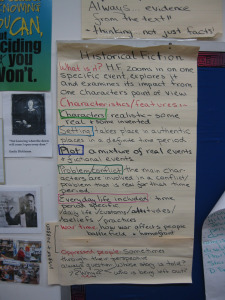 Always... evidence
from the text!!
- thinking.. not just facts!
KNOWING
YOU CAN,
Deciding
you
Won't.
Historical Fiction
What is it? H.F. zooms in on one
specific event, explores it
and examines its impact from
one characters point of view
Characteristics/features:-
Characters realistic - some
real + some invented
Setting takes place in authentic
places in a definite time period.
Plot a mixture of real events
+ fictional events
Problem/Conflict the main char-
acters are involved in a conflict/
problem that is real for that time
period
Everyday life includes time,
period specific
day life/customs/attitudes/
beliefs/practices
war time, how war affects people
battlefield + homefront
Oppressed people. Sometimes
through their perspective
whose
who is being left out?